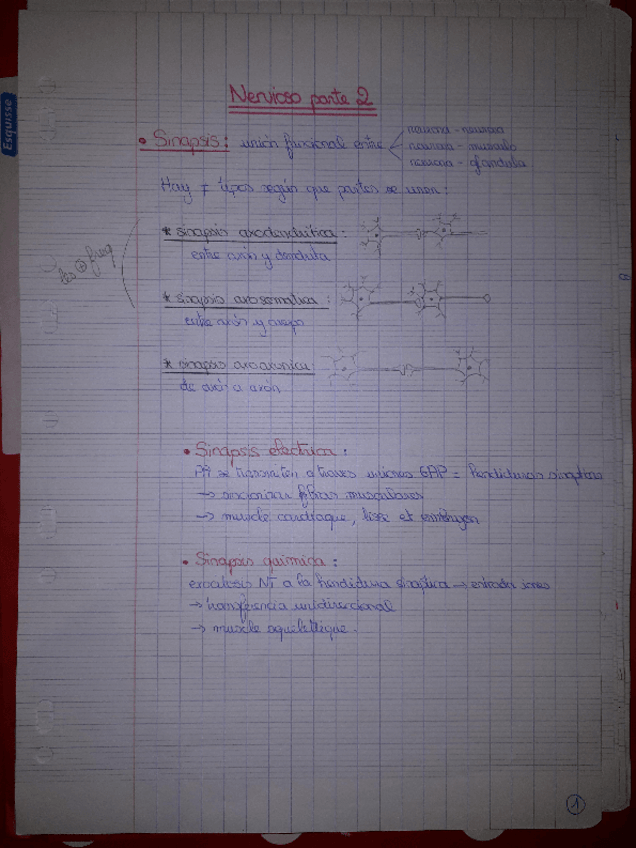 Esquisse
Nervioso parte 2
• Sinapsis: unión funcional entre
neurona - neurona
neurona - musculo
neurona - glandula
Hay ≠ tipos según que partes se unen:
* sinapsis axodendritica:
entre axón y dendrita
los ⊕ freq
* sinapsis axosomatica:
entre axón y cuerpo
* sinapsis axoaxonica:
de axón a axón
• Sinapsis electrica:
se transmiten a traves uniones GAP = hendiduras sinaptica
→ sincronizar fibras musculares
→ muscle cardiaque, lisse et embryon
• Sinapsis química:
exocitosis NT a la hendidura sinaptica → entrada iones
→ transferencia unidirecional
→ muscle squelettique.
1